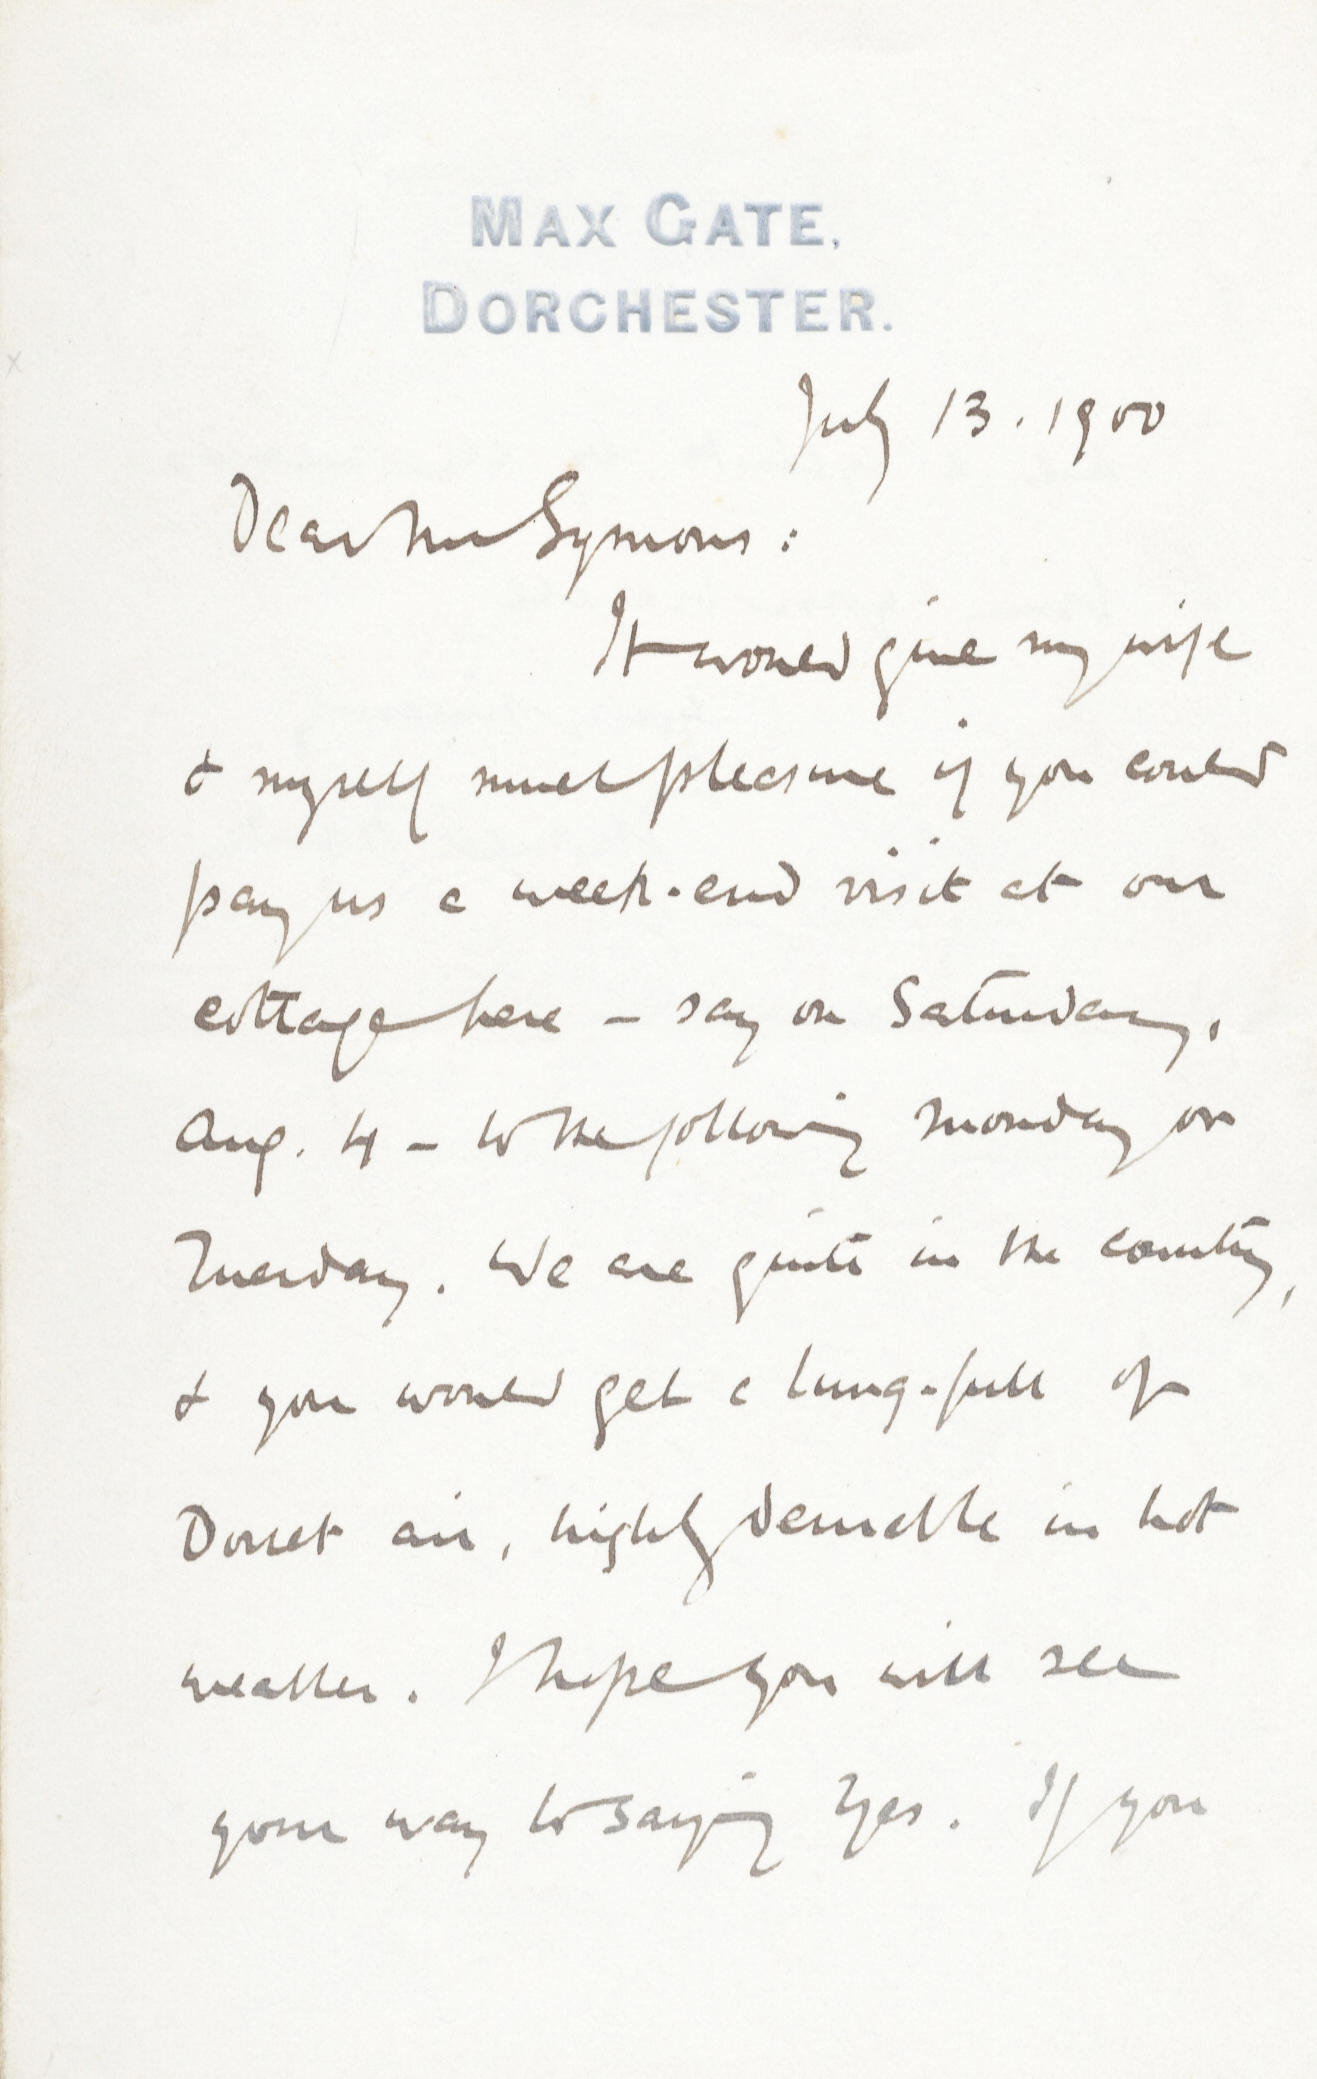 MAX GATE,
DORCHESTER.
July 13. 1900
Dear Mr Symons:
It would give my wife
& myself much pleasure if you could
pay us a week-end visit at our
cottage here – say on Saturday,
Aug. 4 – to the following Monday or
Tuesday. We are quite in the country,
& you would get a lung-full of
Dorset air, highly desirable in hot
weather. I hope you will see
your way to saying Yes. If you